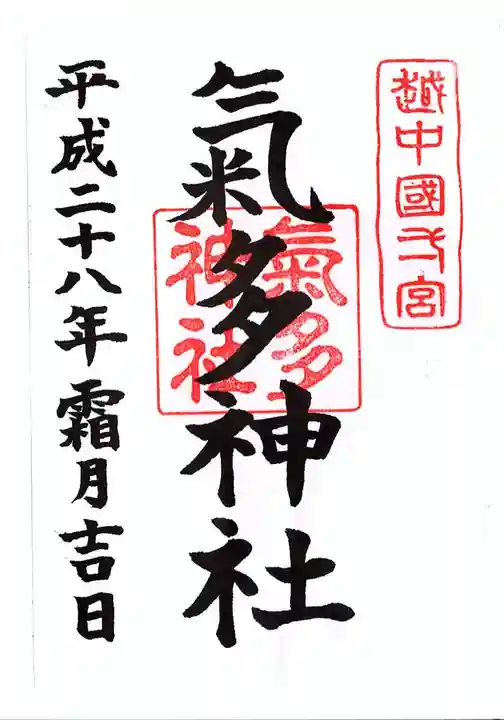 越中國弌宮
氣多神社
氣多
神社
平成二十八年霜月吉日